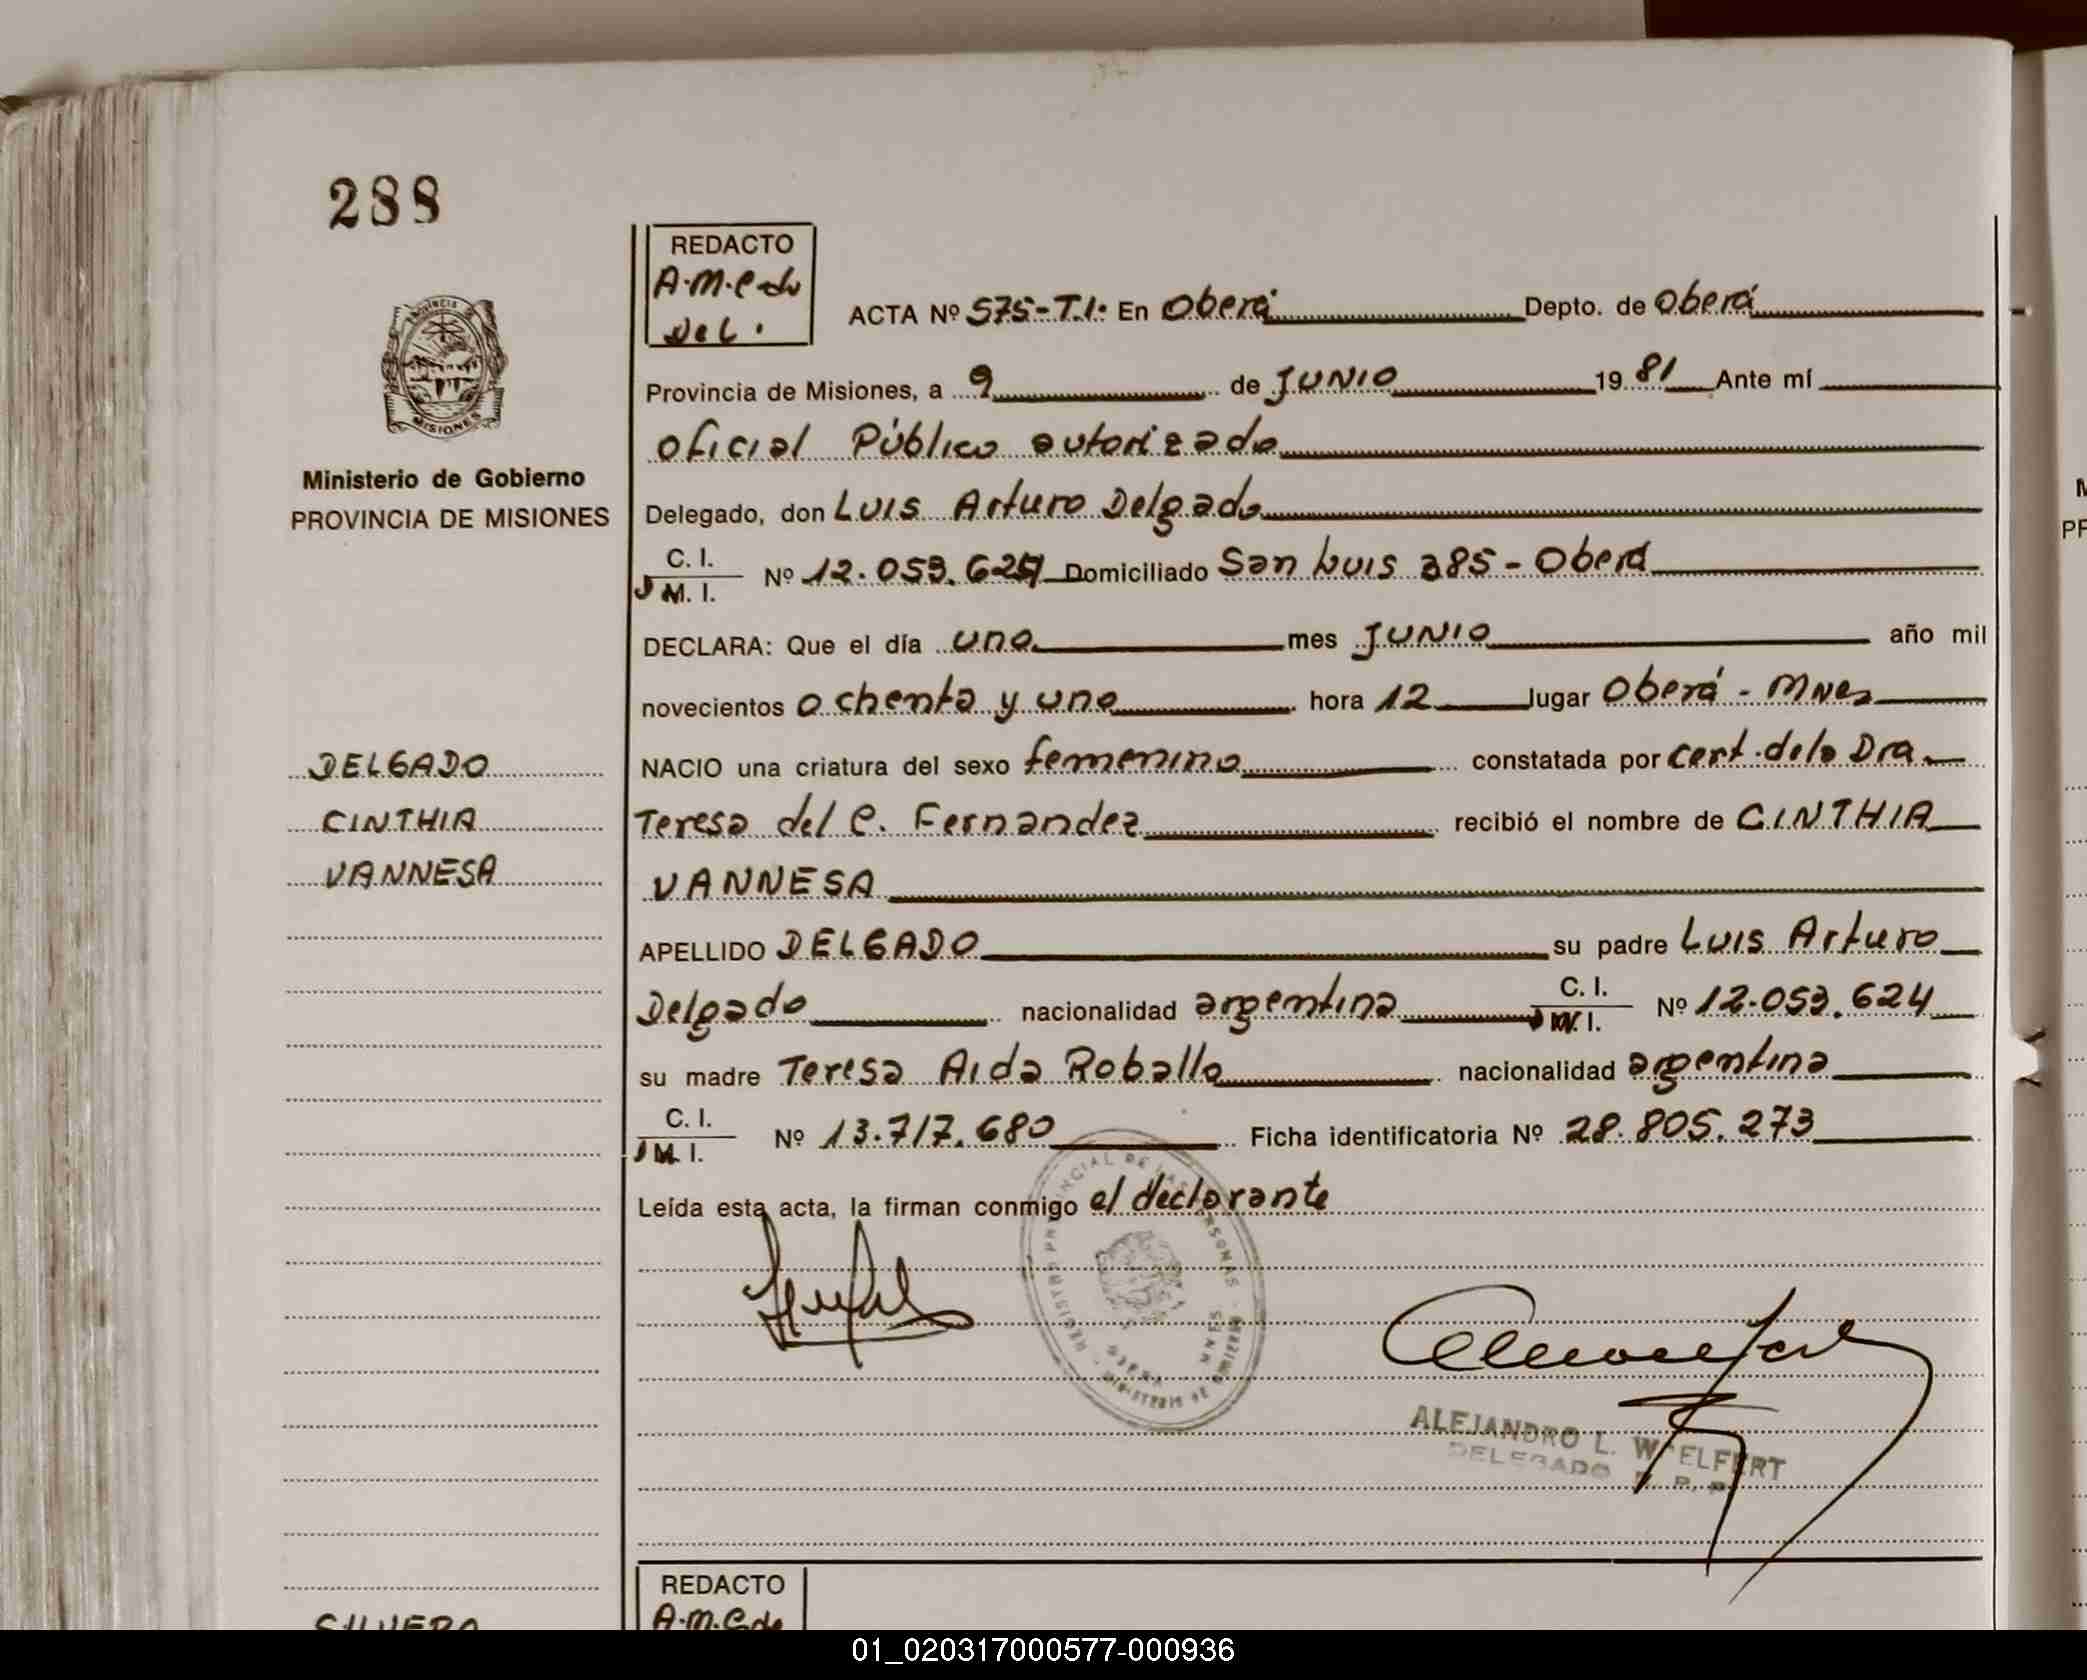 288
REDACTO
A.M.C de
Del.
ACTA Nº 575-T.I. En Oberá Depto. de Oberá
Provincia de Misiones, a 9 de JUNIO 19 81 Ante mí
Oficial Público autorizado
Delegado, don Luis Arturo Delgado
C. I.
M. I.
Nº 12.053.624 Domiciliado San Luis 385 - Oberá
DECLARA: Que el día uno mes JUNIO año mil
novecientos ochenta y uno hora 12 lugar Oberá - Mnes
NACIO una criatura del sexo femenino constatada por cert. de la Dra
Teresa del C. Fernandez recibió el nombre de CINTHIA
VANNESA
APELLIDO DELGADO su padre Luis Arturo
Delgado nacionalidad argentina C. I. M. I. Nº 12.053.624
su madre Teresa Aida Roballo nacionalidad argentina
C. I.
M. I.
Nº 13.717.680 Ficha identificatoria Nº 28.805.273
Leída esta acta, la firman conmigo el declarante
PROVINCIA
MISIONES
Ministerio de Gobierno
PROVINCIA DE MISIONES
DELGADO
CINTHIA
VANNESA
REGISTRO PROVINCIAL DE LAS PERSONAS
MNES
MINISTERIO DE GOBIERNO
ALEJANDRO L. WOELFERT
DELEGADO R. P. P.
REDACTO
A.M.C de
SILVERO
01_020317000577-000936